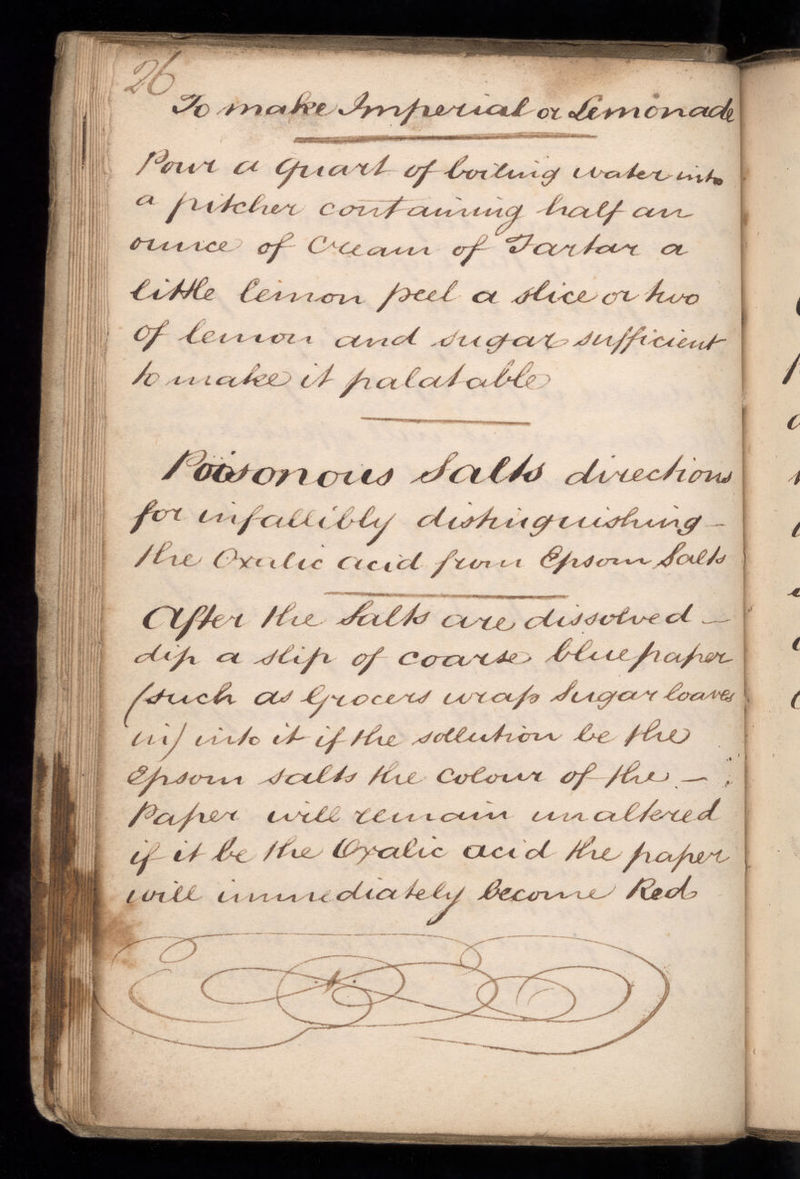 26
To make Imperial or Lemonade
Pour a quart of boiling water into
a pitcher containing half an
ounce of Cream of Tartar a
little lemon peel a slice or two
of lemon and sugar sufficient
to make it palatable
Poisonous Salts directions
for infallibly distinguishing –
the Oxalic acid from Epsom Salts
After the Salts are dissolved –
dip a slip of coarse blue paper
(such as Grocers wrap Sugar loaves
in) into it if the sollution be the
Epsom salts the Colour of the –
Paper will remain unaltered
if it be the Oxalic acid the paper
will immediately become Red